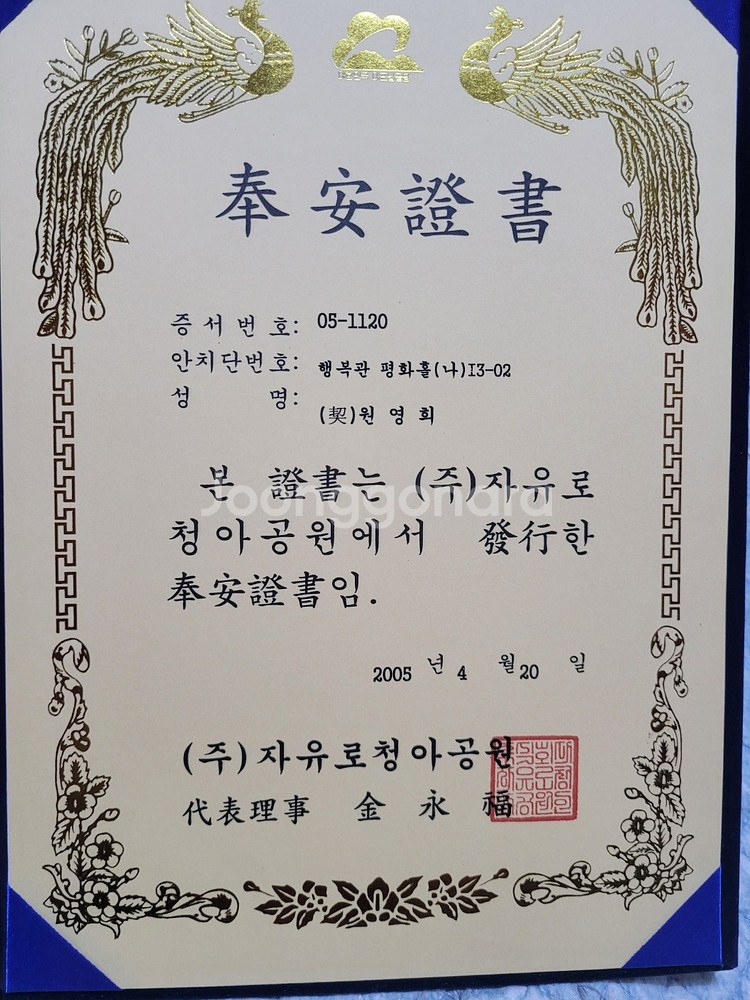 奉安證書
증서번호: 05-1120
안치단번호: 행복관 평화홀(나)I3-02
성 명: (契)원 영 희
본 證書는 (주)자유로
Joonggonara
청아공원에서 發行한
奉安證書임.
2005 년 4 월 20 일
(주)자유로청아공원
代表理事 金 永 福